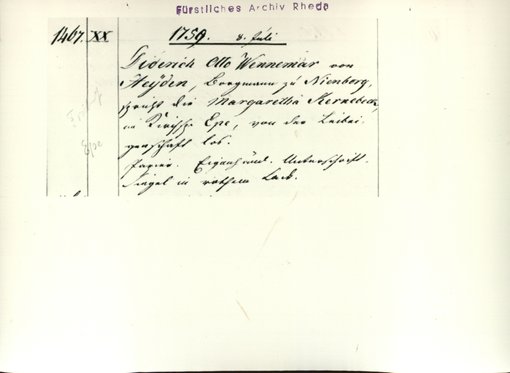 Fürstliches Archiv Rheda
1467. XX 1759. 8. Juli
Diderich Otto Wennemar von
Heÿden, Borgmann zu Nienborg,
spricht die Margaretha Kernebeck,
im Kirchsp. Epe, von der Leibei-
genschaft los.
Epe
Papier. Eigenhänd. Unterschrift.
Siegel in rothem Lack.